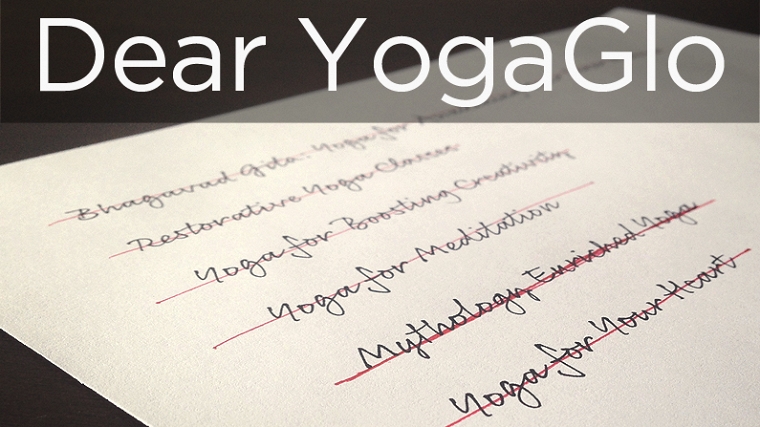 Dear YogaGlo
Bhagavad Gita: Yoga for
Restorative Yoga Classes
Yoga for Boosting Creativity
Yoga for Meditation
Mythology Enriched Yoga
Yoga for Your Heart